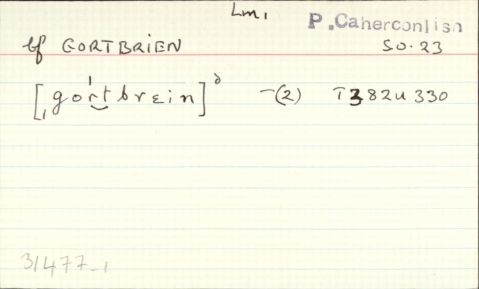 Lm.
P. Caherconlish
lf GORTBRIEN SO.23
[ˌgoˈrt brɛin]ᵟ ¬(2) T382u330
31477-1